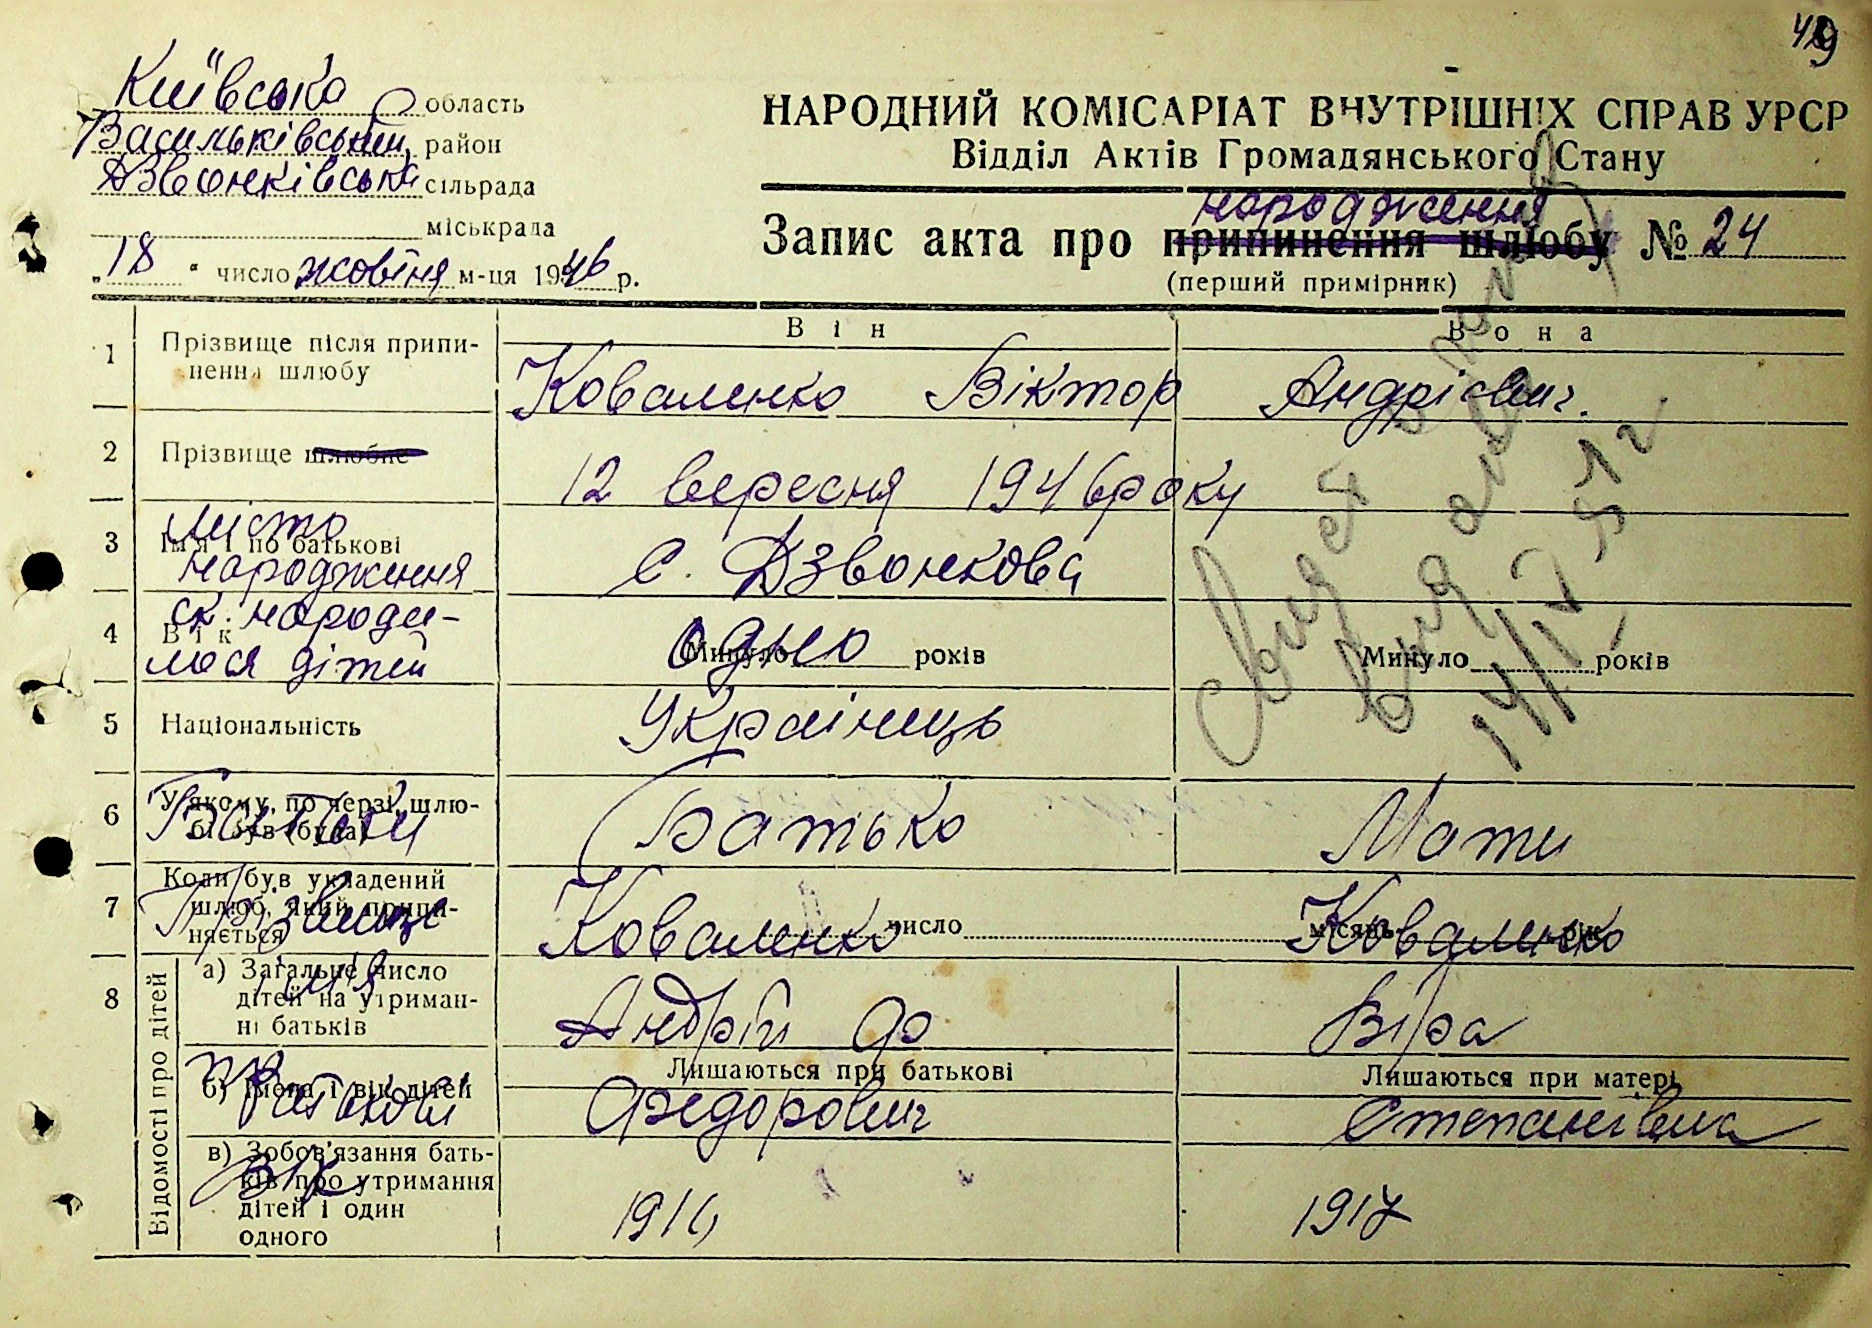 49
Київська область
Васильківський район
Дзвонківська сільрада
міськрада
„18“ число жовтня м-ця 1946 р.
НАРОДНИЙ КОМІСАРІАТ ВНУТРІШНІХ СПРАВ УРСР
Відділ Актів Громадянського Стану
народження
Запис акта про припинення шлюбу № 24
(перший примірник)
Він Вона
1 Прізвище після припинення шлюбу
Коваленко Віктор Андрієвич.
2 Прізвище шлюбне
12 вересня 1946 року
місто
3 Ім'я і по батькові
народження
с. Дзвонкова
ск. народи-
4 Вік
лося дітей
одно
Минуло років Минуло років
5 Національність
Українець
6 У якому по черзі шлю-
бі був (була)
Батьки
Батько Мати
7 Коли був укладений
шлюб, який припи-
няється
Прізвище
число місяць рік
Коваленко Коваленко
8 Відомості про дітей
а) Загальне число
дітей на утриман-
ні батьків
імя
Андрій Ф Віра
Лишаються при батькові Лишаються при матері
б) Імена і вік дітей
по батькові
Федорович Степанівна
в) Зобов'язання бать-
ків про утримання
дітей і один
одного
Вік
1914 1917